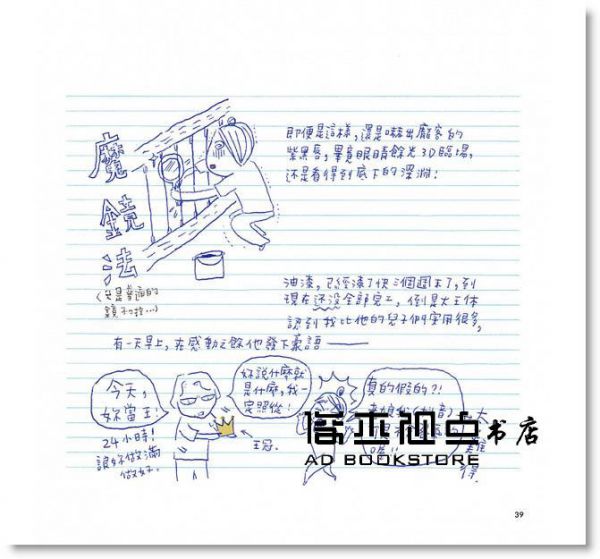 魔鏡法
(只是普通的
鏡子啦…)
即便是這樣，還是嚇出龐客的
紫黑唇，畢竟眼睛餘光3D臨場，
還是看得到底下的深淵！
油漆，已經漆了快三個週末了，到
現在還沒全部完工，倒是大王体
認到我比他的兒子們實用很多，
有一天早上，在感動之餘他發下豪語——
今天，
妳當王！
24小時！
讓妳做滿
做好．
妳說什麼就
是什麼，我一
定照從！
王冠．
真的假的？！
大
難
得．
AD BOOKSTORE
书店
39